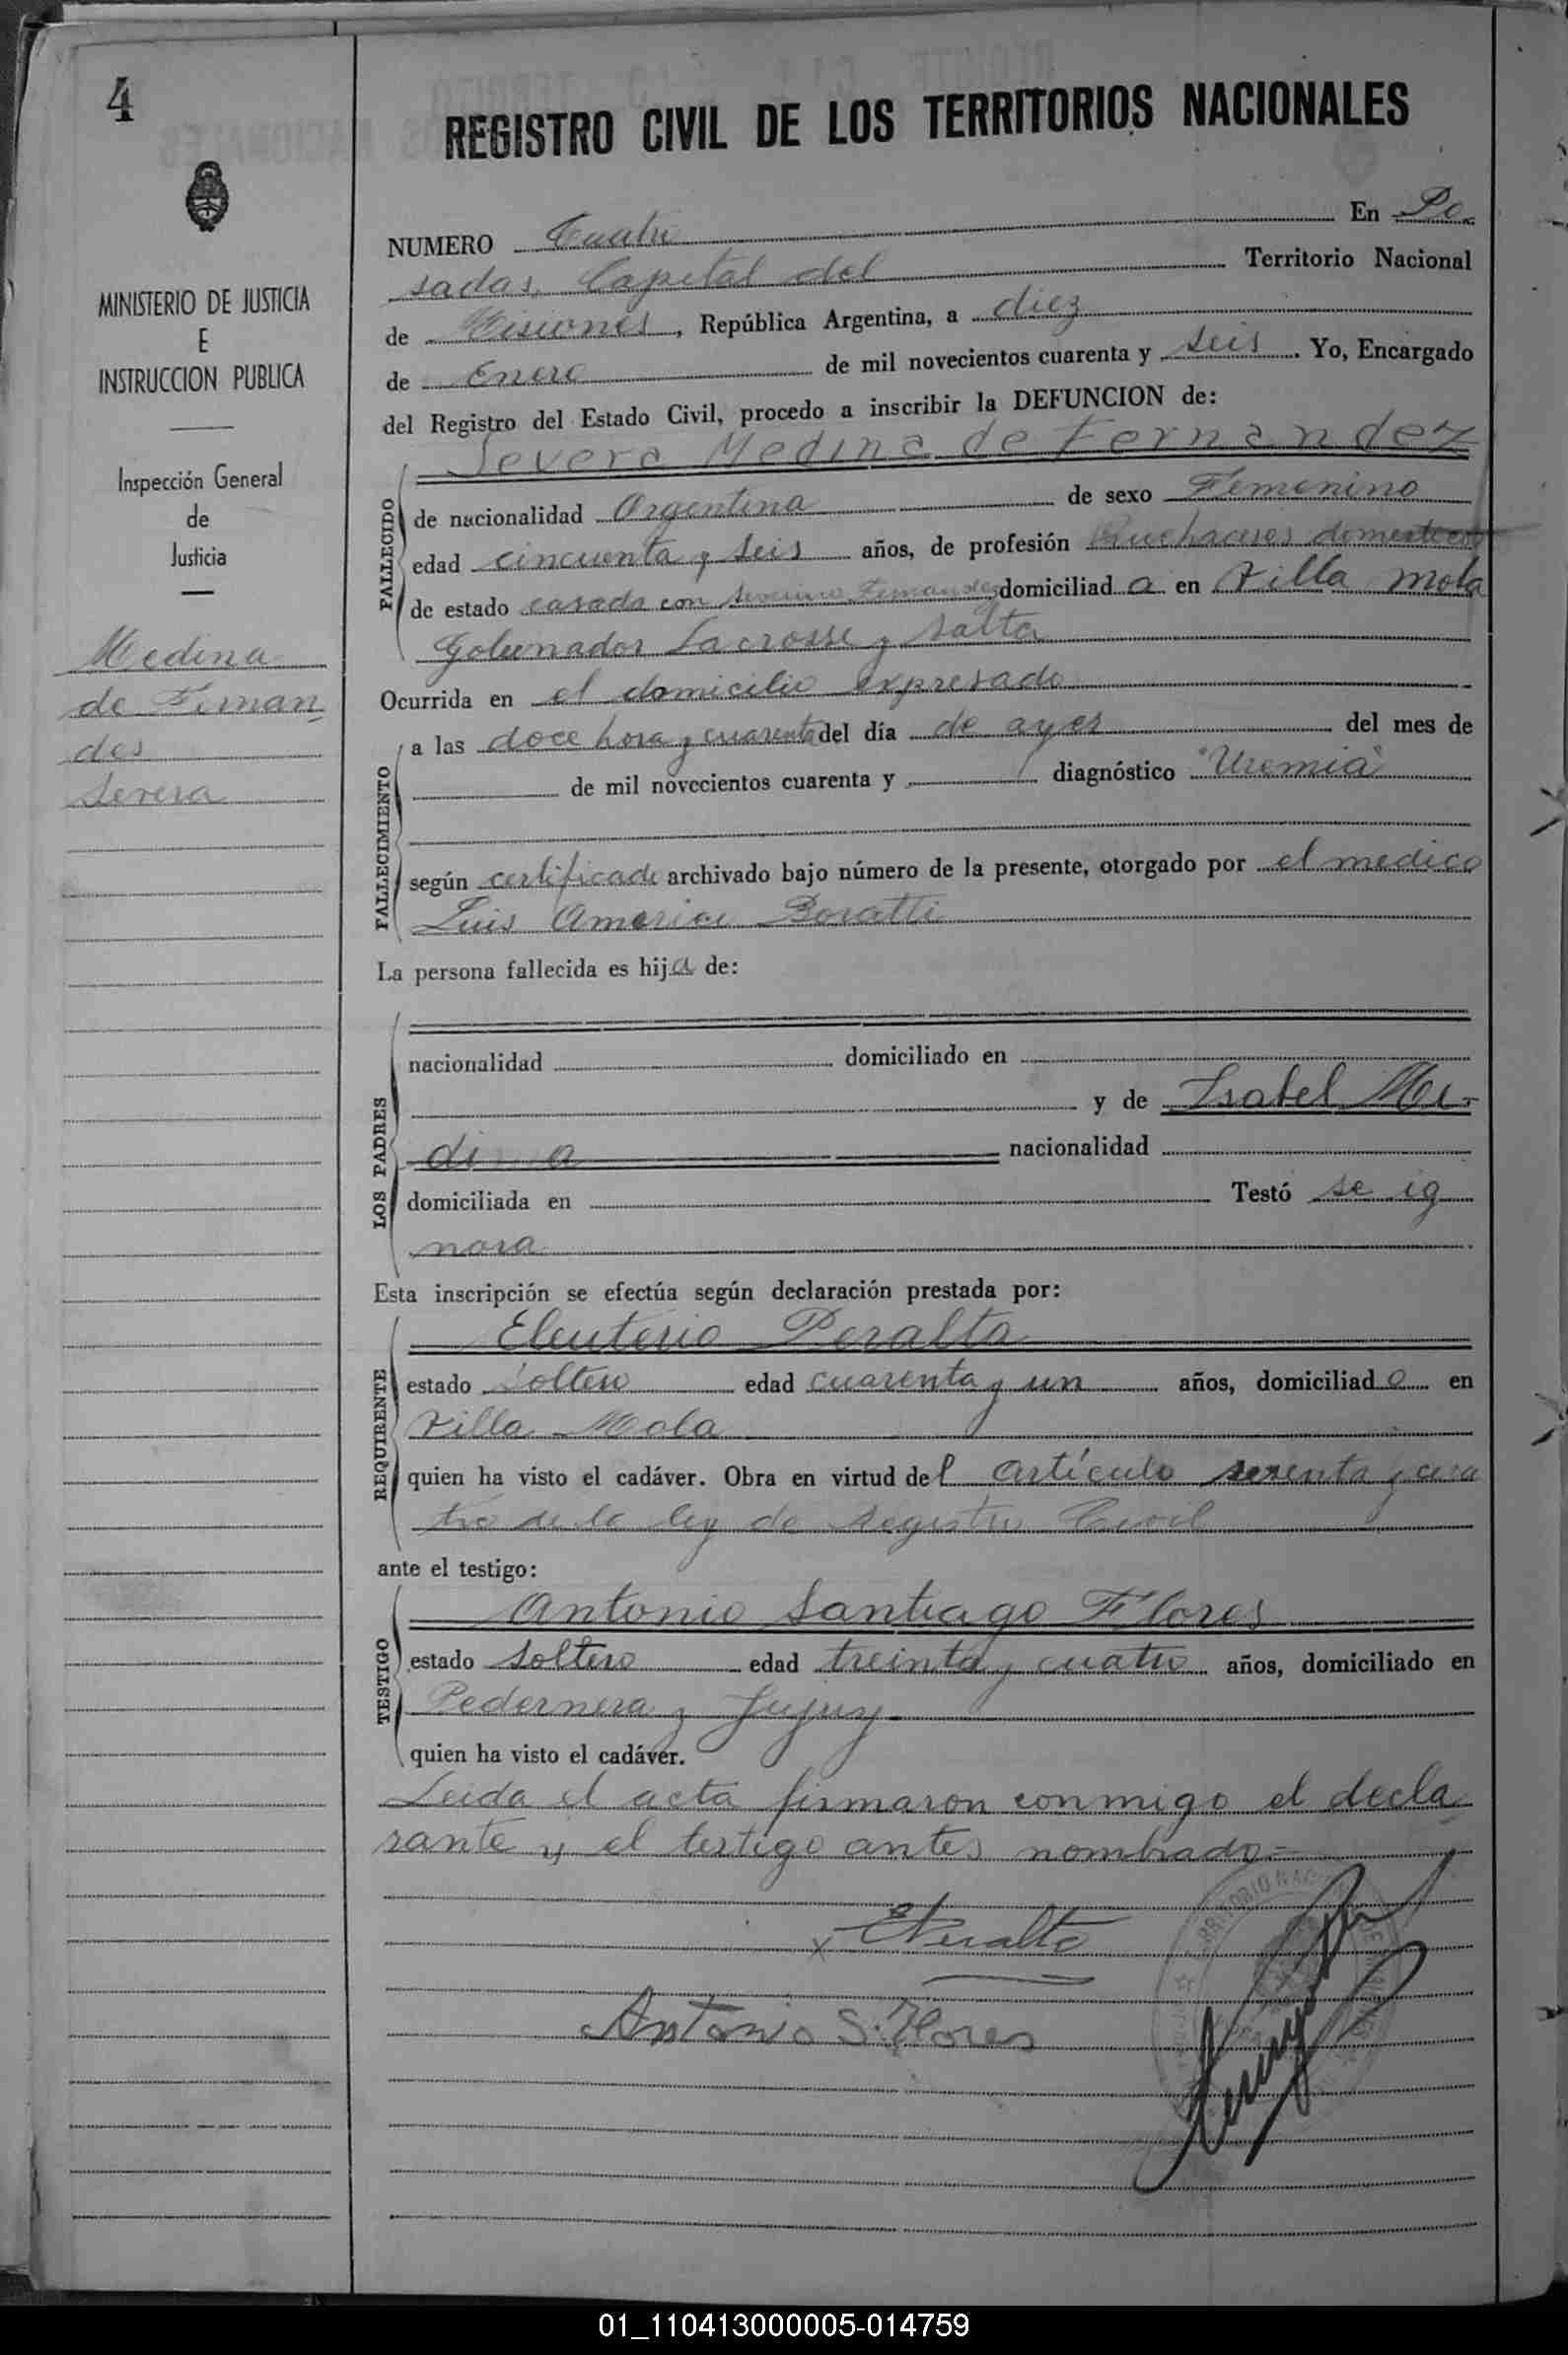 4
MINISTERIO DE JUSTICIA
E
INSTRUCCION PUBLICA
Inspección General
de
Justicia
Medina
de Fernan
des
Severa
REGISTRO CIVIL DE LOS TERRITORIOS NACIONALES
NUMERO Cuatro En Po
sadas, Capital del Territorio Nacional
de Misiones, República Argentina, a diez
de Enero de mil novecientos cuarenta y seis. Yo, Encargado
del Registro del Estado Civil, procedo a inscribir la DEFUNCION de:
Severa Medina de Fernandez
FALLECIDO
de nacionalidad Argentina de sexo Femenino
edad cincuenta y seis años, de profesión Quehaceres domesticos
de estado casada con Severino Fernandez domiciliad a en Villa Mola
Gobernador Lacrosse y Salta
Ocurrida en el domicilio expresado
FALLECIMIENTO
a las doce hora y cuarenta del día de ayer del mes de
de mil novecientos cuarenta y diagnóstico "Uremia"
según certificado archivado bajo número de la presente, otorgado por el medico
Luis Americo Boratti
La persona fallecida es hija de:
LOS PADRES
nacionalidad domiciliado en
y de Isabel Me-
dina nacionalidad
domiciliada en Testó se ig
nora
Esta inscripción se efectúa según declaración prestada por:
Eleuterio Peralta
REQUIRENTE
estado Soltero edad cuarenta y un años, domiciliado en
Villa Mola
quien ha visto el cadáver. Obra en virtud del artículo sesenta y cua
tro de la ley de Registro Civil
ante el testigo:
Antonio Santiago Flores
TESTIGO
estado Soltero edad treinta y cuatro años, domiciliado en
Pedernera y Jujuy
quien ha visto el cadáver.
Leida el acta firmaron conmigo el decla
rante y el testigo antes nombrado=
x EPeralta
Antonio S. Flores
01_110413000005-014759